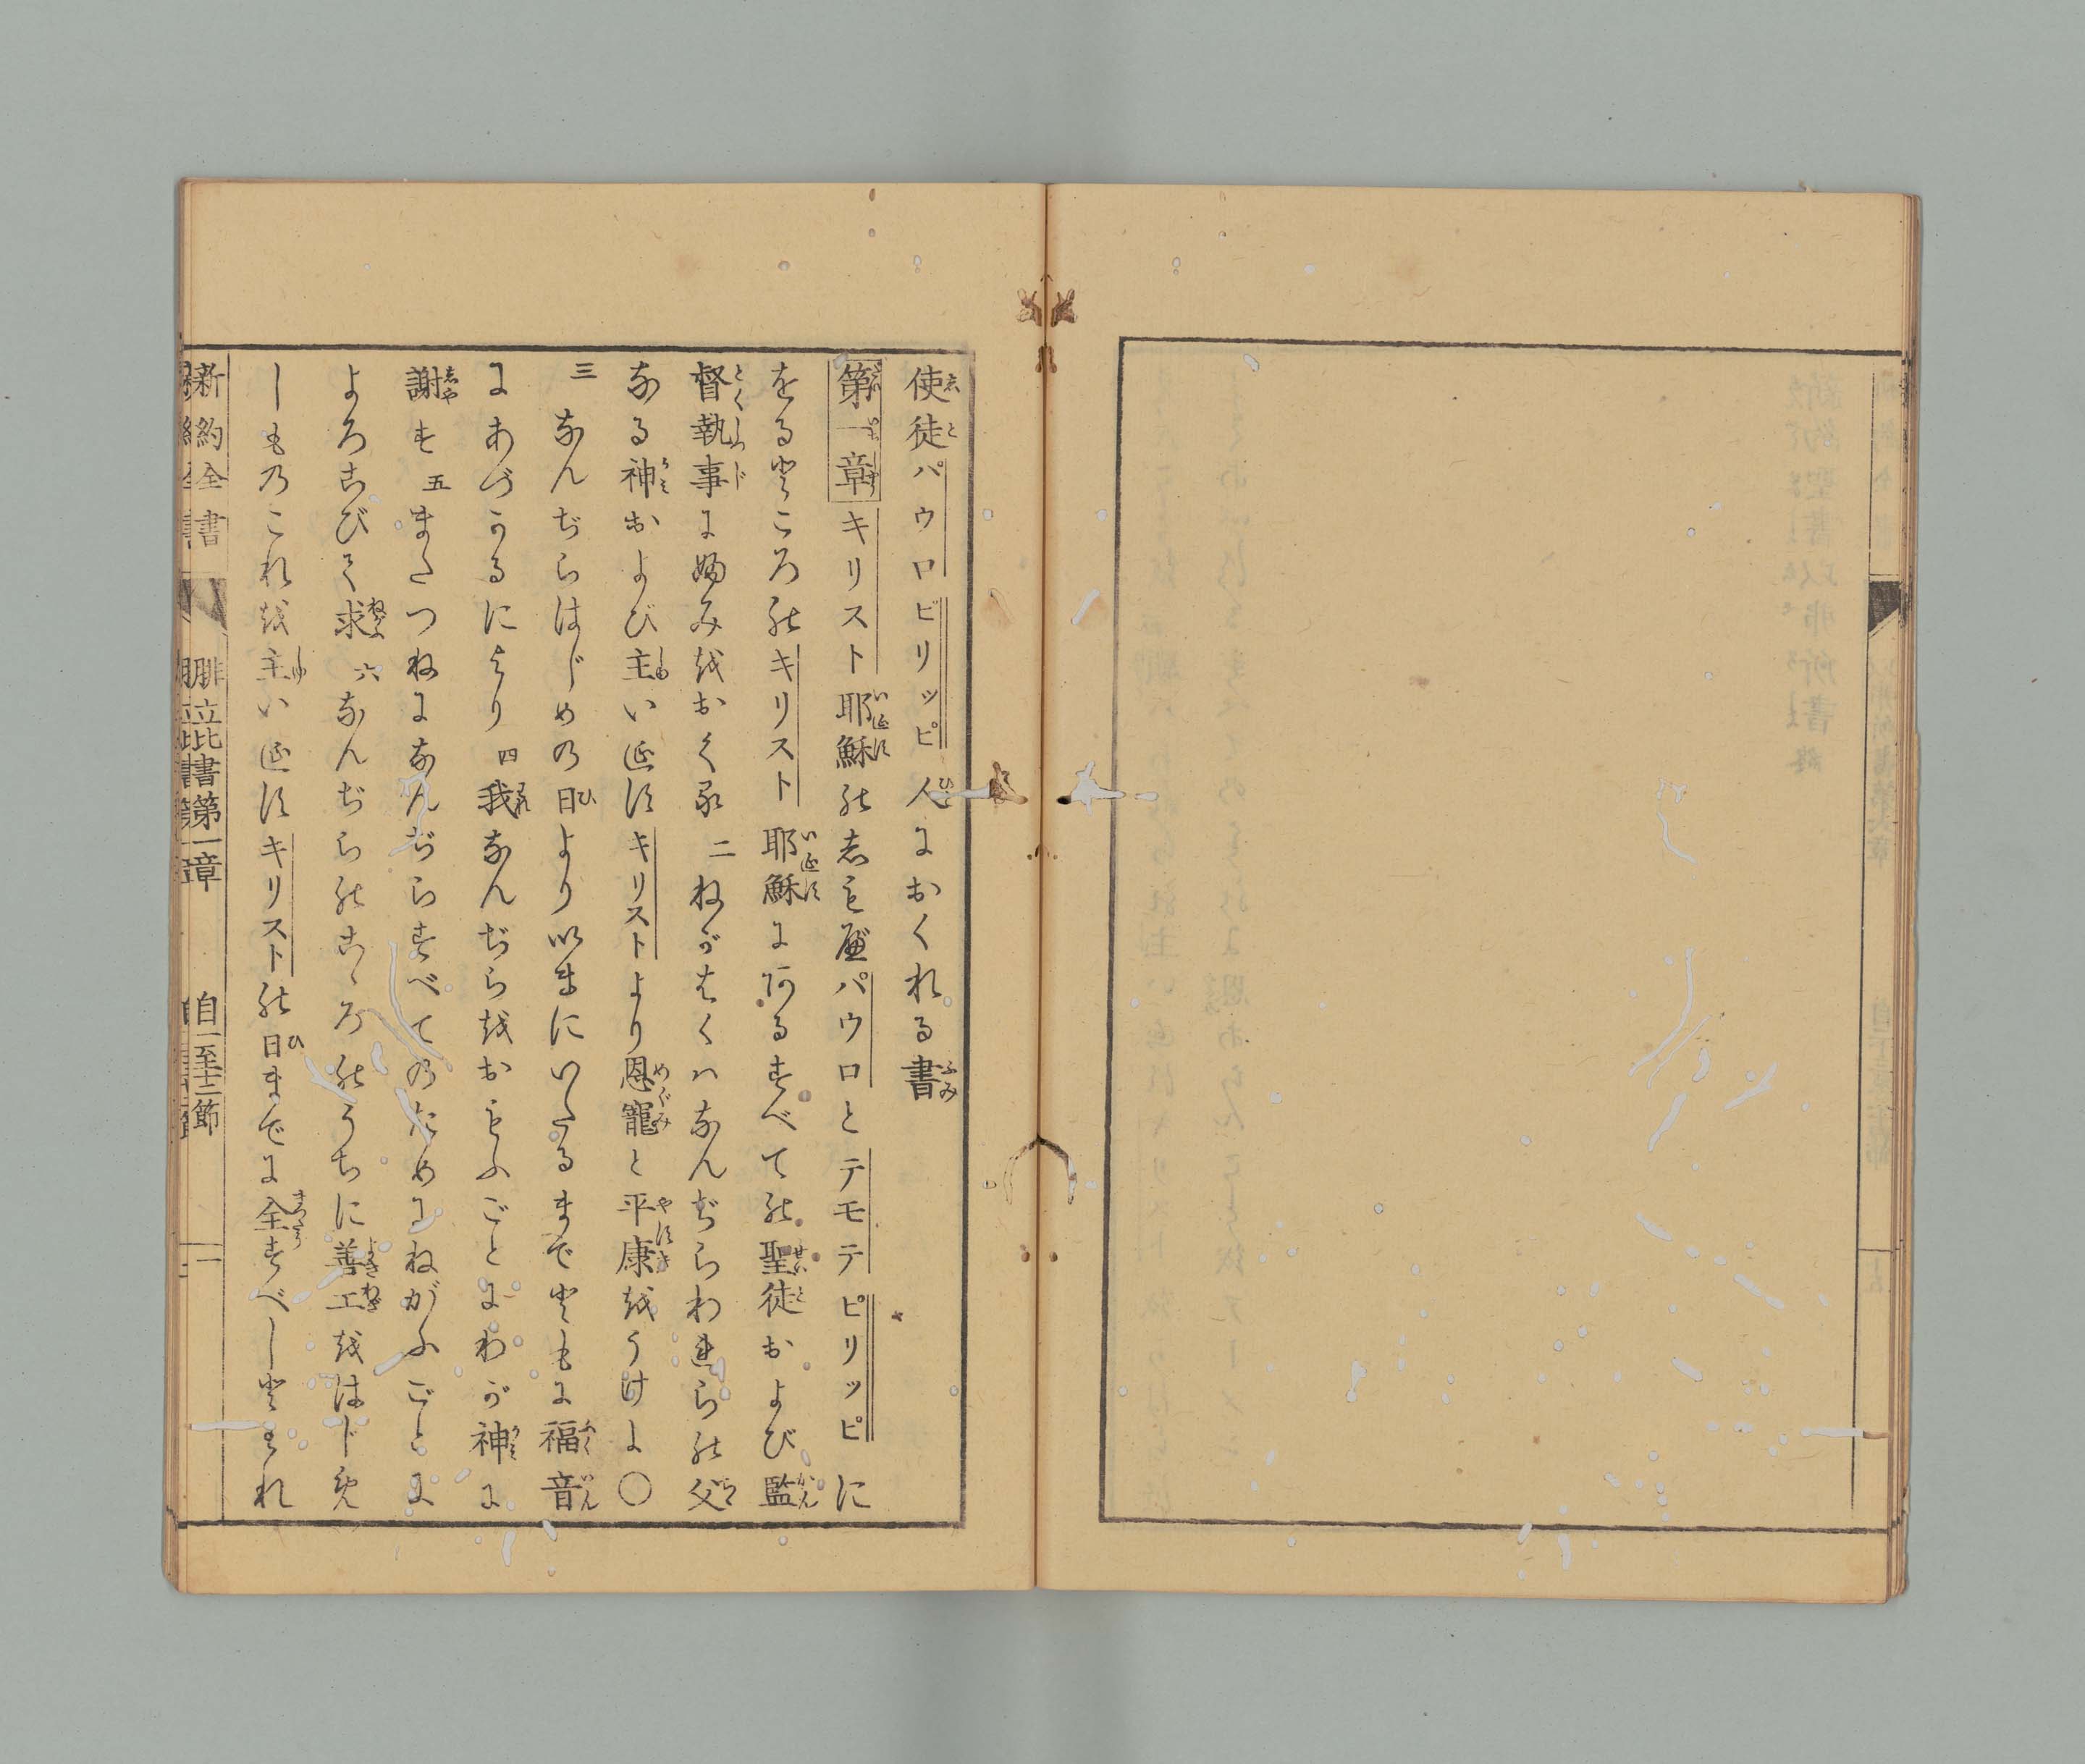 使徒パウロピリッピ人におくれる書
第一章 キリスト耶穌のしもべパウロとテモテピリッピに
をるところのキリスト耶穌にあるすべての聖徒および監
督執事にふみをおくる 二 ねがはくハなんぢらわれらの父
なる神および主いエスキリストより恩寵と平康をうけよ〇
三 なんぢらはじめの日よりいまにいたるまでともに福音
にあづかるにより 四 我なんぢらをおもふごとにわが神に
謝す 五 またつねになんぢらすべてのためにねがふごとに
よろこびて求ふ 六 なんぢらのこゝろのうちに善工をはじめ
しものこれを主いエスキリストの日までに全すべしとわれ
新約全書 腓立比書第一章 自一至十二節 一